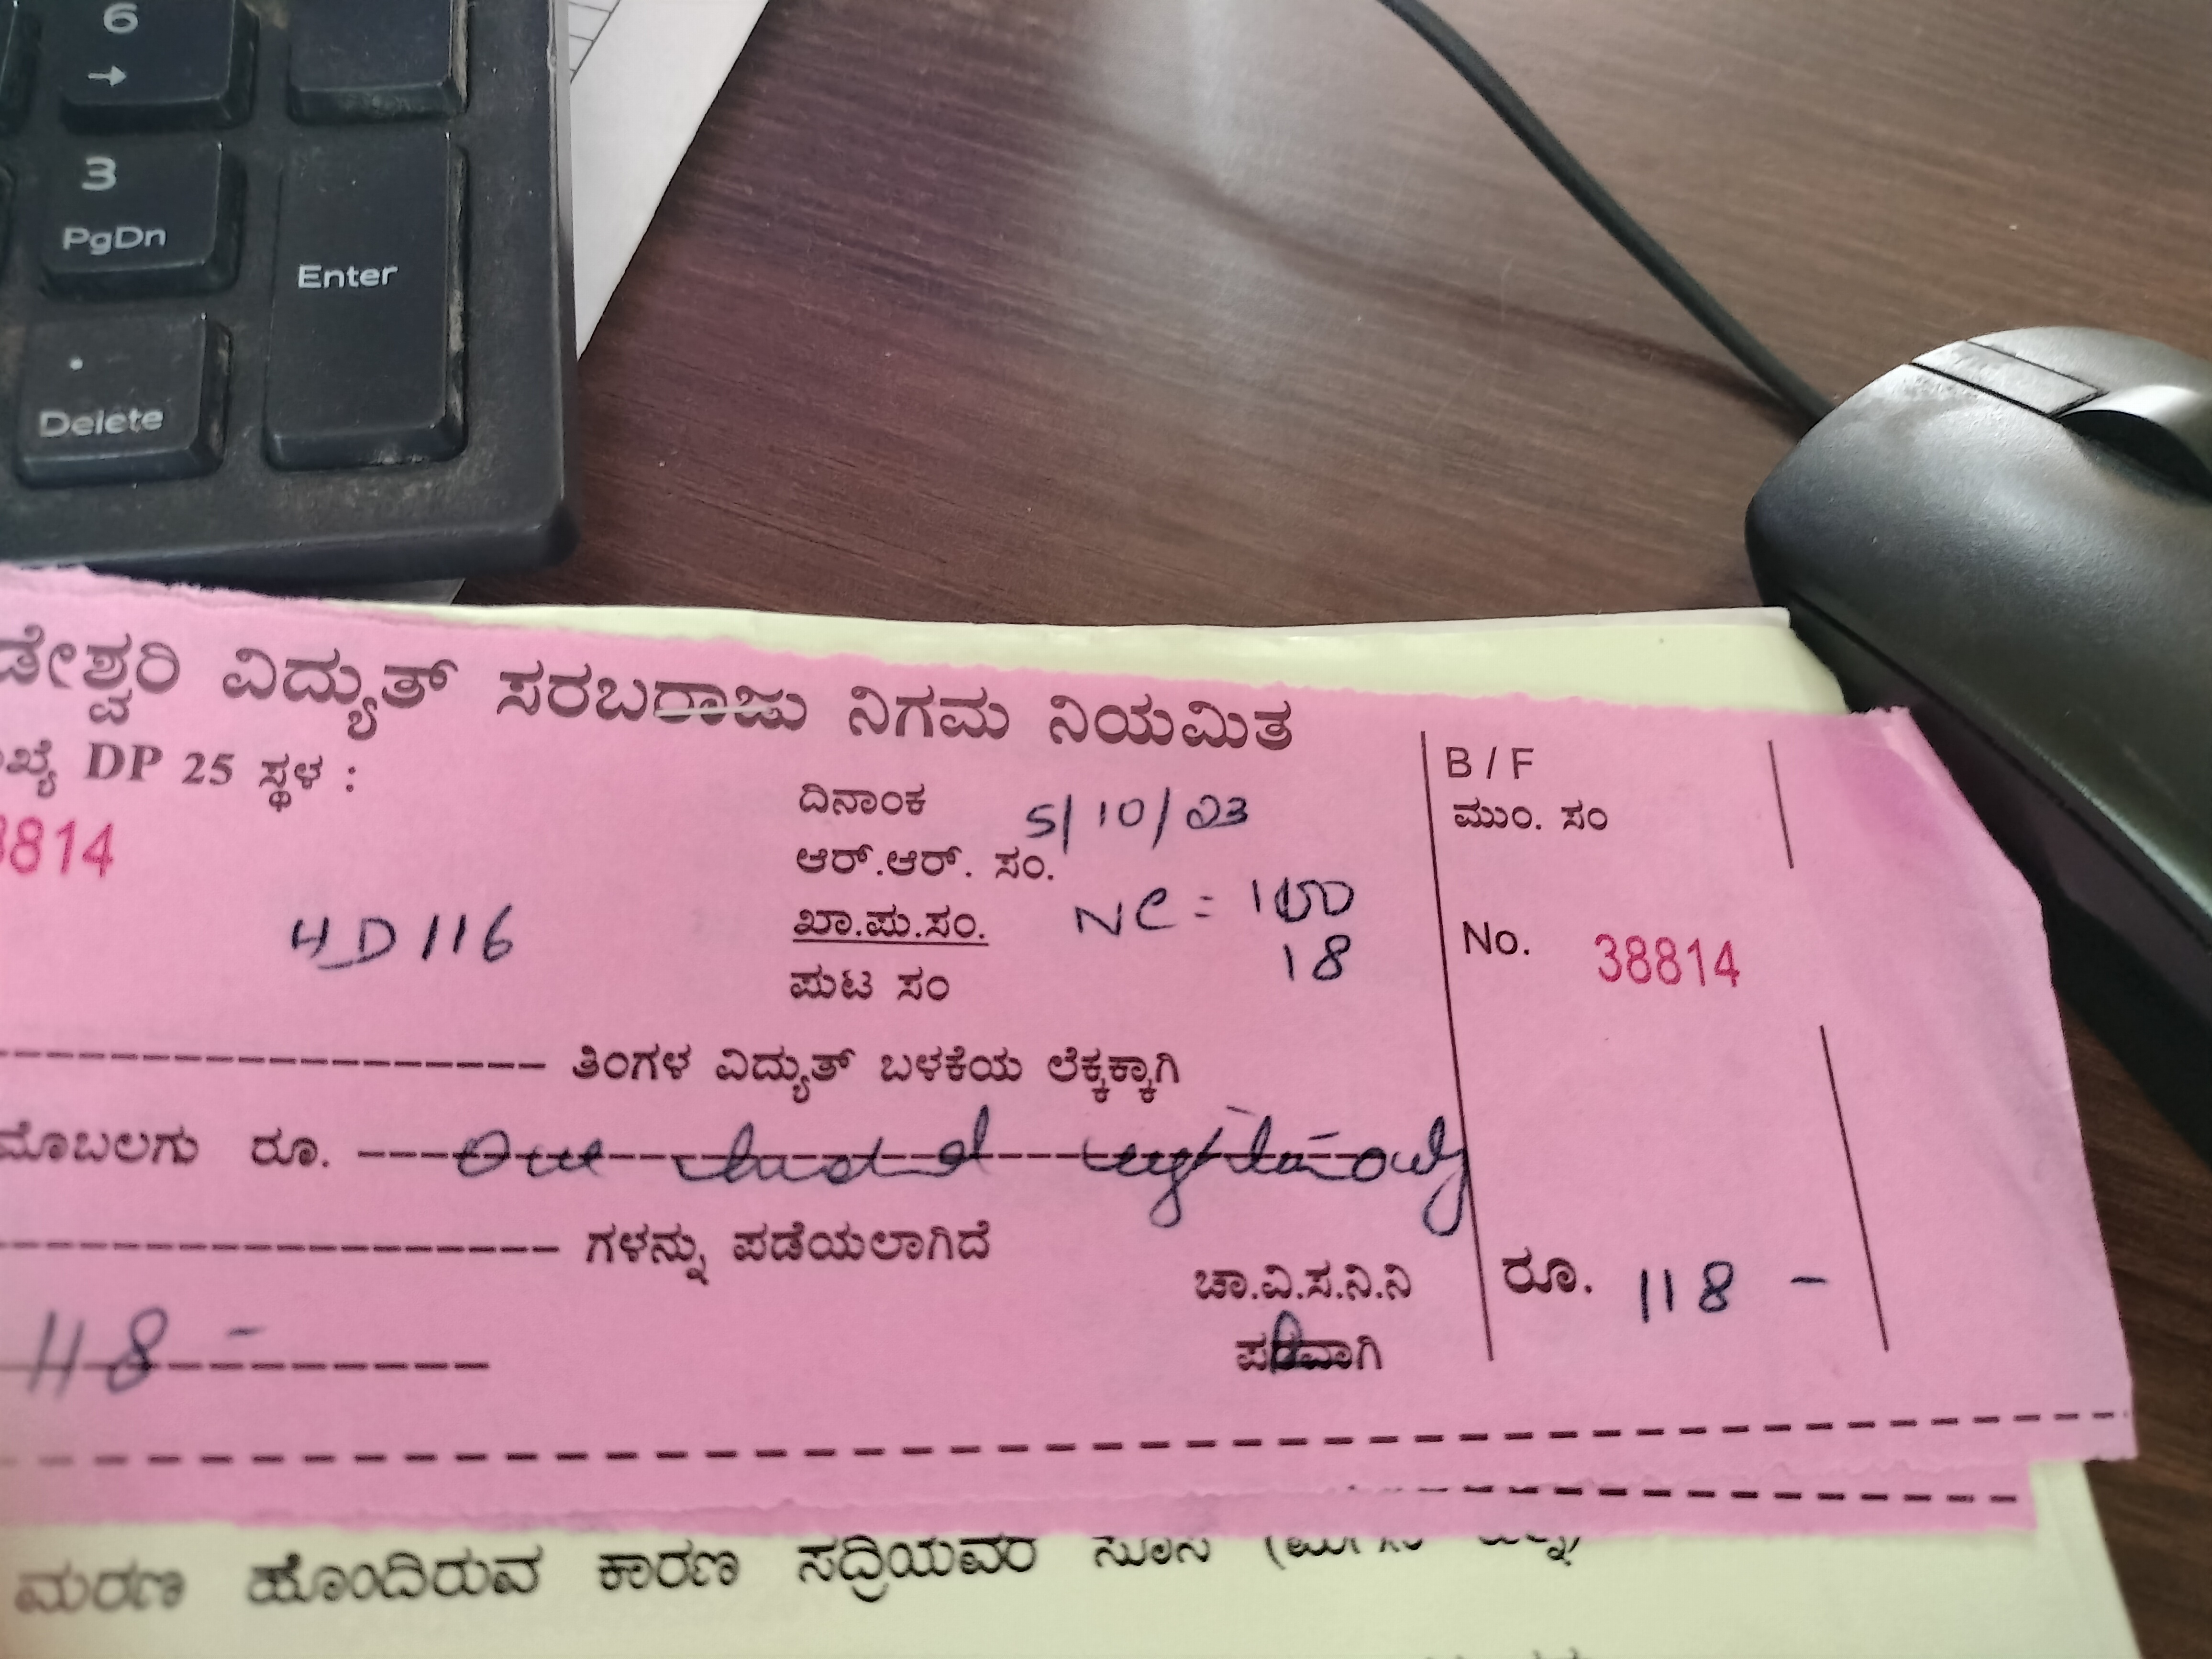 6
→
3
PgDn
Enter
.
Delete
ಡೇಶ್ವರಿ ವಿದ್ಯುತ್ ಸರಬರಾಜು ನಿಗಮ ನಿಯಮಿತ
ಖ್ಯೆ DP 25 ಸ್ಥಳ :
B / F
ಮುಂ. ಸಂ
ದಿನಾಂಕ 5/10/23
8814
ಆರ್.ಆರ್. ಸಂ.
HD116
ಖಾ.ಪು.ಸಂ. NC = 100
18
ಪುಟ ಸಂ
No. 38814
ತಿಂಗಳ ವಿದ್ಯುತ್ ಬಳಕೆಯ ಲೆಕ್ಕಕ್ಕಾಗಿ
ಮೊಬಲಗು ರೂ. One only
ಗಳನ್ನು ಪಡೆಯಲಾಗಿದೆ
ಚಾ.ವಿ.ಸ.ನಿ.ನಿ
ರೂ. 118 -
118 -
ಪರವಾಗಿ
ಮರಣ ಹೊಂದಿರುವ ಕಾರಣ ಸದ್ರಿಯವರ